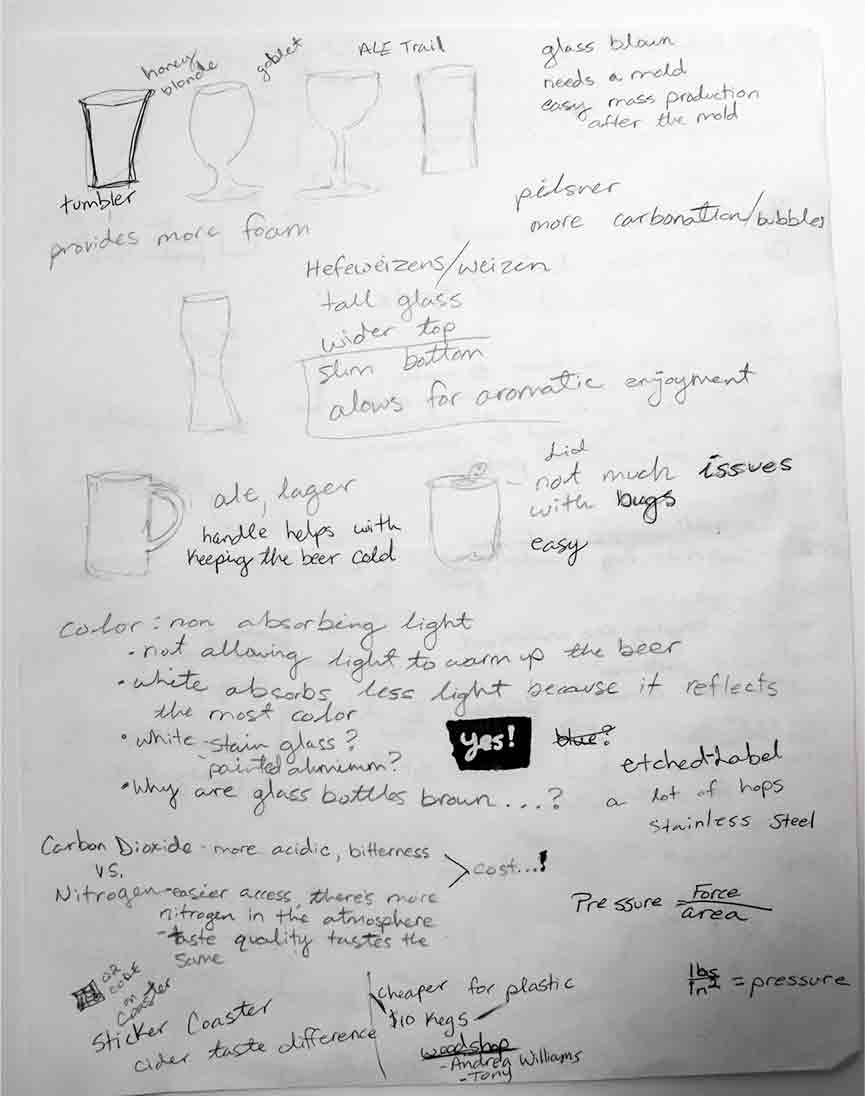 honey
blonde
goblet
ALE Trail
glass blown
needs a mold
easy mass production
after the mold
tumbler
provides more foam
pilsner
more carbonation/bubbles
Hefeweizens/weizen
tall glass
wider top
slim bottom
alows for aromatic enjoyment
ale, lager
handle helps with
keeping the beer cold
Lid
not much issues
with bugs
easy
color: non absorbing light
• not allowing light to warm up the beer
• white absorbs less light because it reflects
the most color
• white stain glass?
painted aluminum?
yes!
blue?
• Why are glass bottles brown...?
etched-Label
a lot of hops
stainless steel
Carbon Dioxide - more acidic, bitterness
vs.
Nitrogen - easier access, there's more
nitrogen in the atmosphere
- taste quality tastes the
same
cost...!
Pressure = Force
area
lbs
in² = pressure
QR
code
on
coaster
Sticker Coaster
cider taste difference
cheaper for plastic
$10 kegs
woodshop
- Andrea Williams
- Tony